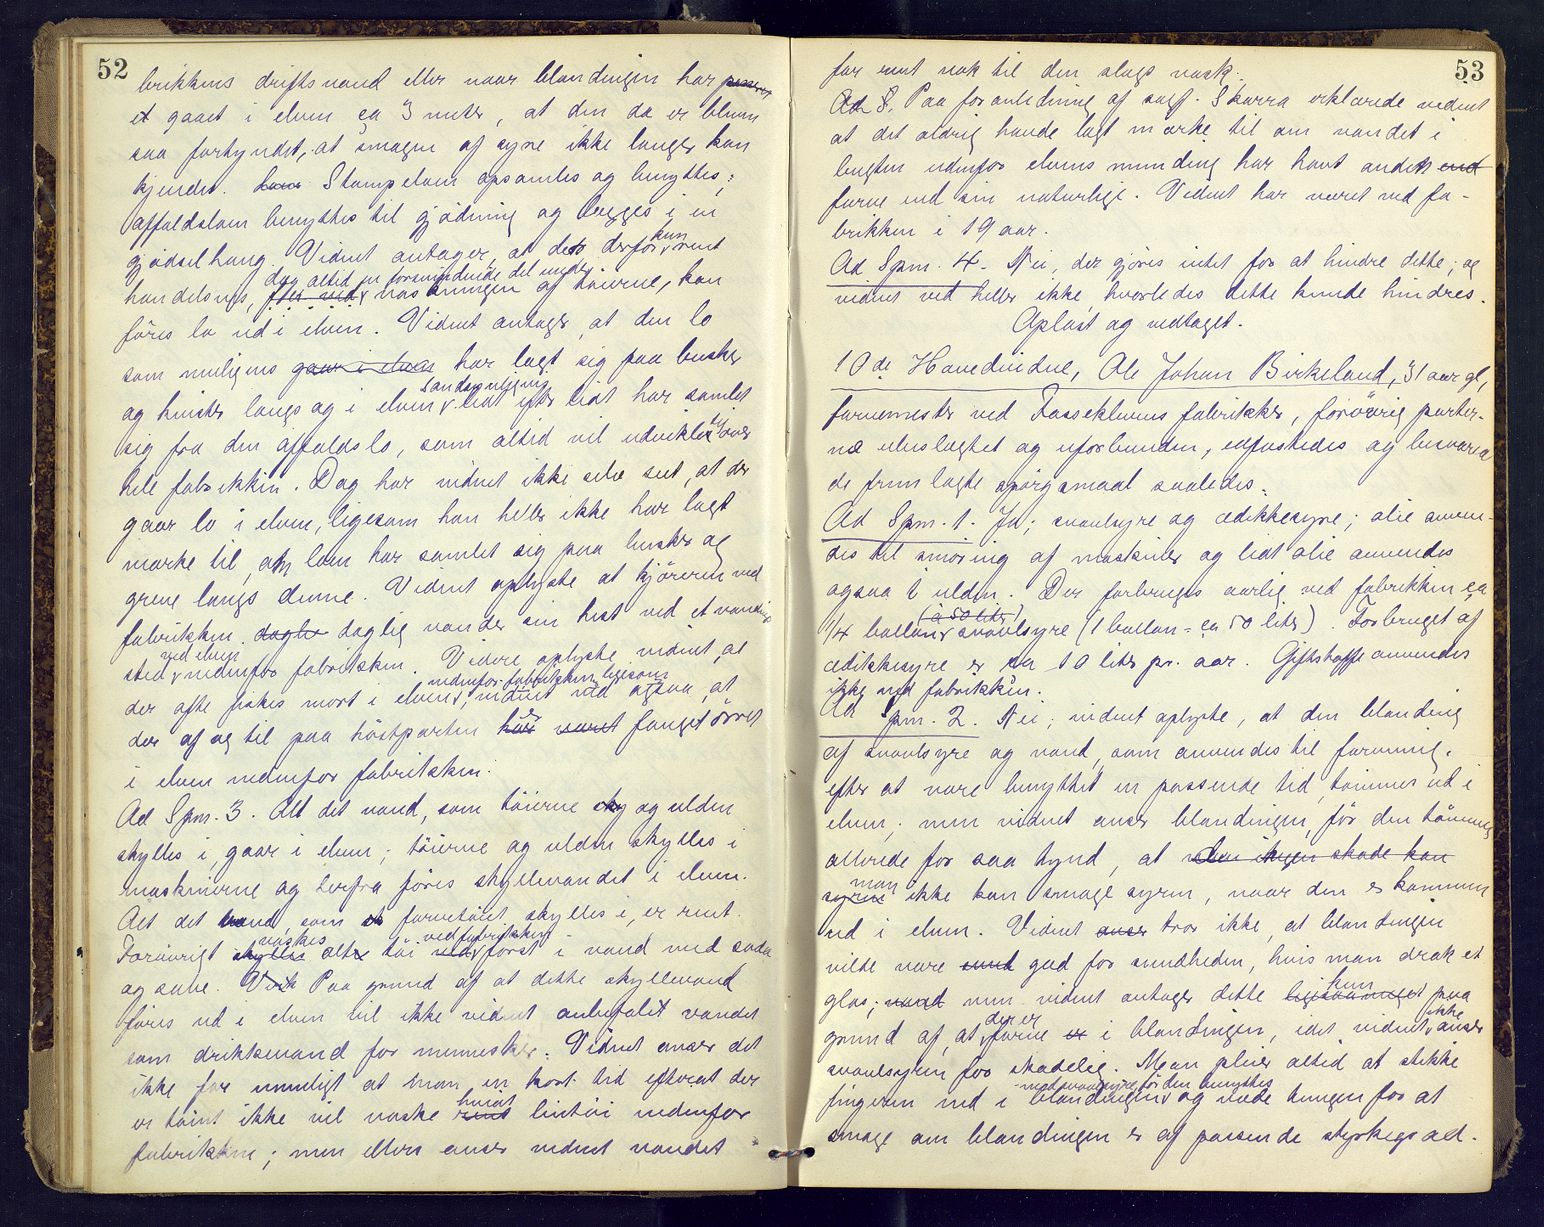 52
brikkens driftsvand eller naar blandingen har passeret
et gaaet i elven ca 3 meter, at den da er bleven
saa fortyndet, at smagen af syre ikke længer kan
kjendes. Stampeloen opsamles og benyttes;
affaldsloen benyttes til gjødning og lægges i en
gjødselhaug. Vidnet antager, at det derfor kun rent
hændelsvis, dog altid en forsvindende del under vaskningen af tøierne, kan
føres lo ud i elven. Vidnet antager, at den lo
som muligens gaar i elven har lagt sig paa busker
og kvister langs og i elven sandsynligvis lidt efter lidt har samlet
sig fra den affaldslo, som altid vil udvikle sig over
hele fabrikken. Dog har vidnet ikke selv seet, at der
gaar lo i elven, ligesom han heller ikke har lagt
mærke til, om loen har samlet sig paa busker og
grene langs denne. Vidnet oplyste at kjøreren ved
fabrikken dagli daglig vander sin hest ved et vandings
sted ved elven nedenfor fabrikken. Videre oplyste vidnet, at
der ofte fiskes mort i elven nedenfor fabrikken, ligesom vidnet ved ogsaa, at
der af og til paa høstparten har er været fanget ørret
i elven nedenfor fabrikken.
Ad Spm. 3. Alt det vand, som tøierne sky og ulden
skylles i, gaar i elven; tøierne og ulden skylles i
maskinerne og derfra føres skyllevandet i elven.
Alt det vand, som et farvetøiet skylles i, er rent.
Forøvrigt skylles vaskes alt tøi ved fabrikken først i vand med soda
og sæbe. Paa grund af at dette skyllevand
føres ud i elven vil ikke vidnet anbefalet vandet
som drikkevand for mennesker. Vidnet anser det
ikke for umuligt at man en kort tid efterat der
er tømt ikke vil vaske rent hvidt lintøi nedenfor
fabrikken; men ellers anser vidnet vandet
53
for rent nok til den slags vask.
Ad 8. Paa foranledning af sagf. Skarra erklærede vidnet
at det aldrig havde lagt mærke til om vandet i
bugten udenfor elvens munding har havt anden end
farve end sin naturlige. Vidnet har været ved fa-
brikken i 19 aar.
Ad Spm. 4. Nei, der gjøres intet for at hindre dette; og
vidnet ved heller ikke, hvorledes dette kunde hindres.
Oplæst og vedtaget.
10de Hovedvidne, Ole Johan Birkeland, 31 aar gl,
farvemester ved Fossekleivens fabrikker, forøvrig parter-
ne ubeslægtet og uforbunden, edfæstedes og besvarede
de fremlagte spørgsmaal saaledes.
Ad Spm. 1. Ja; svovlsyre og eddikkesyre; olie anven-
des til smøring af maskiner og lidt olie anvendes
ogsaa i ulden. Der forbruges aarlig ved fabrikken ca
14 ballon (à 50 liter) svovlsyre (1 ballon = ca 50 liter). Forbruget af
eddikkesyre er ca 10 liter pr. aar. Giftstoffe anvendes
ikke ved fabrikken.
Ad Spm. 2. Nei; vidnet oplyste, at den blanding
af svovlsyre og vand, som anvendes til farvning,
efter at være benyttet en passende tid, tømmes ud i
elven; men vidnet anser blandingen, før den tømmes
allerede for saa tynd, at den ingen skade kan
syren man ikke kan smage syren, naar den er kommen
ud i elven. Vidnet anser tror ikke, at blandingen
vilde være sund god for sundheden, hvis man drak et
glas; vand men vidnet antager dette ligesaameget kun paa
grund af, at der er farve er i blandingen, idet vidnet ikke anser
svovlsyren for skadelig. Man pleier altid at stikke
fingeren ned i blandingen med svovlsyre før den benyttes og væde tungen for at
smage om blandingen er af passende styrkegrad.